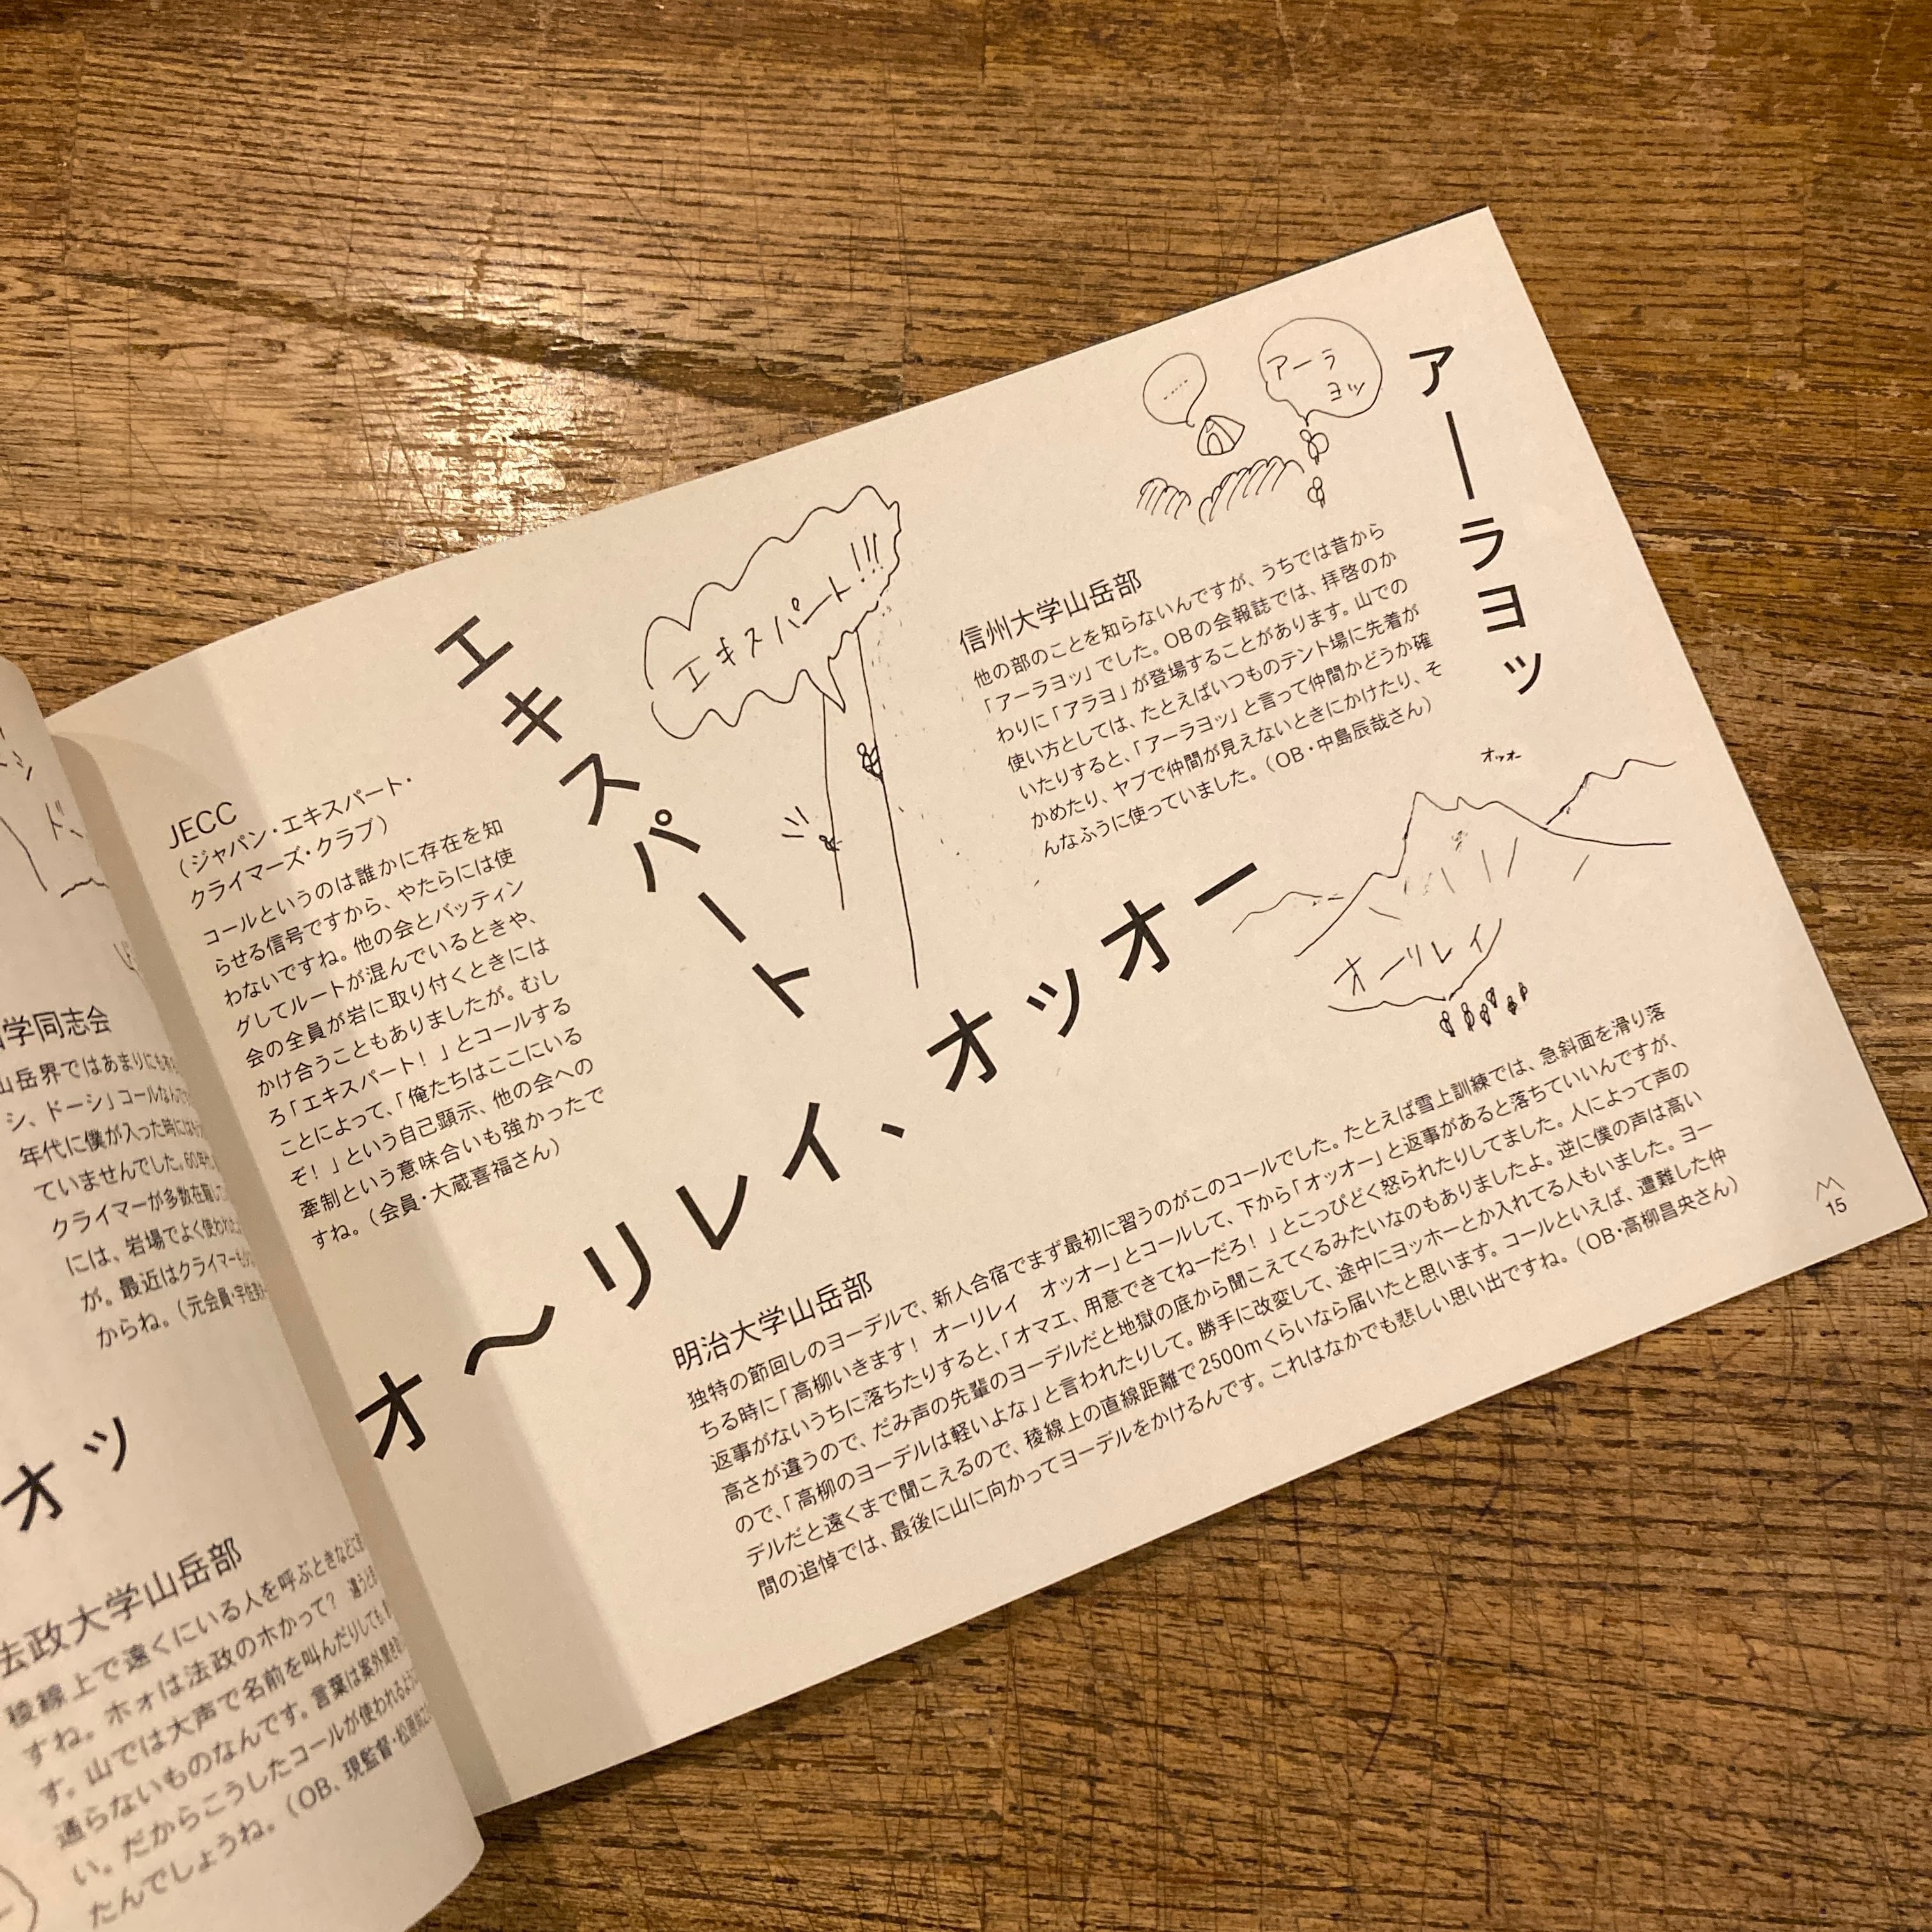 学同志会
山岳界ではあまりにも
シ、ドーシ」コールなん
年代に僕が入った時には
ていませんでした。60年代
クライマーが多数在籍し
には、岩場でよく使われた
が。最近はクライマーも
からね。（元会員・
オッ
法政大学山岳部
稜線上で遠くにいる人を呼ぶときなどに
すね。ホォは法政のホかって？ 違うと
す。山では大声で名前を叫んだりしても
通らないものなんです。言葉は案外聞き
い。だからこうしたコールが使われるよう
たんでしょうね。（OB、現監督・松原
エキスパート
エキスパート!!!
JECC
（ジャパン・エキスパート・
クライマーズ・クラブ）
コールというのは誰かに存在を知
らせる信号ですから、やたらには使
わないですね。他の会とバッティン
グしてルートが混んでいるときや、
会の全員が岩に取り付くときには
かけ合うこともありましたが。むし
ろ「エキスパート！」とコールする
ことによって、「俺たちはここにいる
ぞ！」という自己顕示、他の会への
牽制という意味合いも強かったで
すね。（会員・大蔵喜福さん）
アーラヨッ
……
アーラ
ヨッ
信州大学山岳部
他の部のことを知らないんですが、うちでは昔から
「アーラヨッ」でした。OBの会報誌では、拝啓のか
わりに「アラヨ」が登場することがあります。山での
使い方としては、たとえばいつものテント場に先着が
いたりすると、「アーラヨッ」と言って仲間かどうか確
かめたり、ヤブで仲間が見えないときにかけたり、そ
んなふうに使っていました。（OB・中島辰哉さん）
オ〜リレイ、オッオー
オッオー
オーリレイ
明治大学山岳部
独特の節回しのヨーデルで、新人合宿でまず最初に習うのがこのコールでした。たとえば雪上訓練では、急斜面を滑り落
ちる時に「高柳いきます！ オーリレイ　オッオー」とコールして、下から「オッオー」と返事があると落ちていいんですが、
返事がないうちに落ちたりすると、「オマエ、用意できてねーだろ！」とこっぴどく怒られたりしてました。人によって声の
高さが違うので、だみ声の先輩のヨーデルだと地獄の底から聞こえてくるみたいなのもありましたよ。逆に僕の声は高い
ので、「高柳のヨーデルは軽いよな」と言われたりして。勝手に改変して、途中にヨッホーとか入れてる人もいました。ヨー
デルだと遠くまで聞こえるので、稜線上の直線距離で2500mくらいなら届いたと思います。コールといえば、遭難した仲
間の追悼では、最後に山に向かってヨーデルをかけるんです。これはなかでも悲しい思い出ですね。（OB・高柳昌央さん）
15